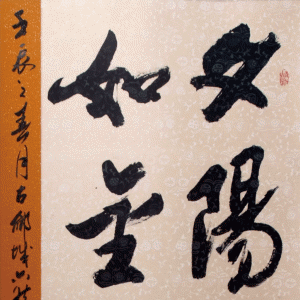 夕陽
如金
壬辰之春月古